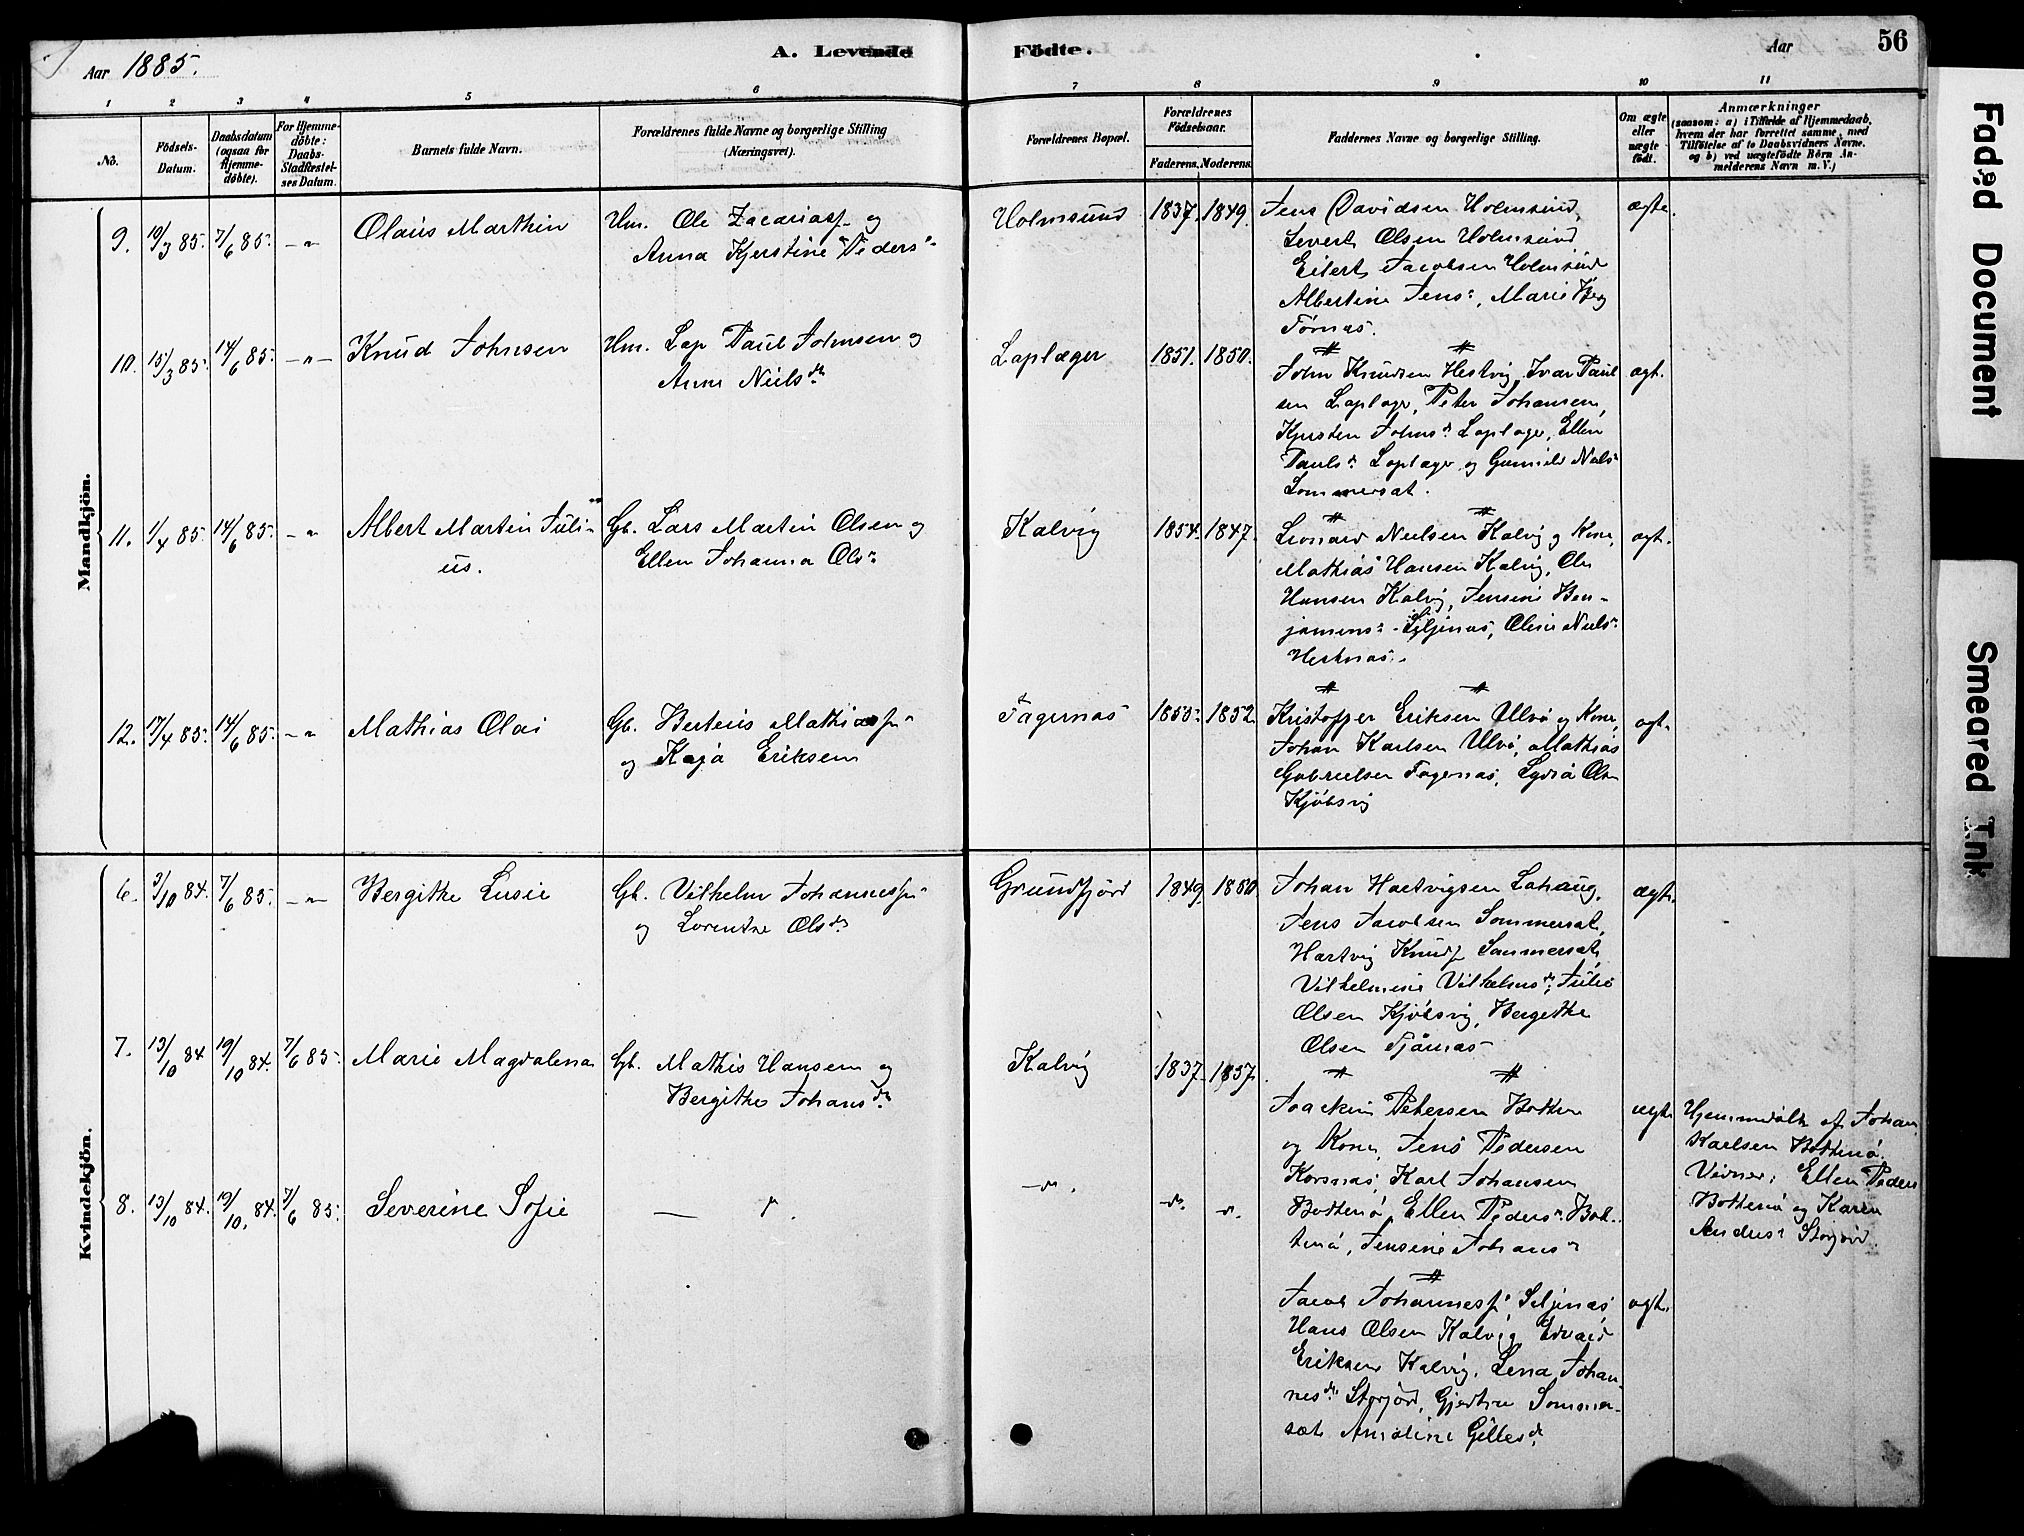 Aar 1885.
A. Levende Födte.
Aar
56
1 2 3 4 5 6 7 8 9 10 11
No.
Födsels-Datum.
Daabsdatum (ogsaa for Hjemme-döbte).
For Hjemme-döbte: Daabs-Stadfæstel-ses Datum.
Barnets fulde Navn.
Forældrenes fulde Navne og borgerlige Stilling (Næringsvei).
Forældrenes Bopæl.
Forældrenes Födselsaar.
Faderens. Moderens.
Faddernes Navne og borgerlige Stilling.
Om ægte eller uægte födt.
Anmærkninger
(saasom: a) i Tilfælde af Hjemmedaab, hvem der har forrettet samme, med Tilföielse af to Daabsvidners Navne, og b) ved uægtefödte Börn An-melderens Navn m. V.)
Mandkjön.
9. 19/3 85. 7/6 85. -"- Olaus Marthin
Hm. Ole Zacariasf. og
Anna Kjerstine Peders"
Holmsund 1837. 1849.
Jens Davidsen Holmsund,
Severt Olsen Holmsund
Eilert Jacobsen Holmsund
Albertine Jens", Marie Berg
Tørnæs.
ægte.
10. 15/3 85. 14/6 85. -"- Knud Johnsen
Hm. Lap Paul Johnsen og
Anne Nielsdr.
Laplæger 1851. 1850.
John Knudsen Hestvig, Ivar Paul
sen Laplæger, Peter Johansen,
Kjersten Johns" Laplæger, Ellen
Pauls" Laplæger og Gunnild Niels"
Sommersæt.
ægt.
11. 1/4 85. 14/6 85. -"- Albert Martin Juli-
us.
Gb. Lars Martin Olsen og
Ellen Johanna Ols"
Kalvig 1854. 1847.
Leonard Nielsen Kalvig og Kone,
Mathias Hansen Kalvig, Ole
Hansen Kalvig, Jensine Ben-
jamins" Seljenæs, Oline Niels"
Hestnæs.
ægt.
12. 17/4 85. 14/6 85. -"- Mathias Olai
Gb. Berteus Mathiasf.
og Kaja Eriksen
Fagernæs 1855. 1852.
Kristoffer Eriksen Ulvø og Kone,
Johan Karlsen Ulvø, Mathias
Gabrielsen Fagernæs, Lydia Olsen
Kjøbsvig
ægt.
Kvindekjön.
6. 3/10 84. 7/6 85. -"- Bergithe Lusie
Gb. Vilhelm Johannesf.
og Lorentze Olsdr.
Grundfjord 1849. 1850
Johan Hartvigsen Lahaug,
Jens Jacobsen Sommersæt,
Hartvig Knudf. Sommersæt,
Vilhelmine Vilhelmsdr., Julie
Olsen Kjøbsvig, Bergithe
Olsen Tjårnæs
ægt.
7. 13/10 84 19/10 84. 7/6 85. Marie Magdalena
Gb. Mathis Hansen og
Bergithe Johansdr.
Kalvig 1837. 1837.
Joackim Petersen Botten
og Kone, Jens Pedersen
Korsnæs, Karl Johansen
Bottenø, Ellen Peders" Bot-
tenø, Jensine Johans"
ægt.
Hjemmedøbt af Johan
Karlsen Bottenø.
Vidner: Ellen Peders
Bottenø og Karen
Anders" Storjord.
8. 13/10 84. 19/10. 84. 7/6 85. Severine Sofie
— " .
-"-. -"-. -"-.
Jacob Johannesf. Seljenæs
Hans Olsen Kalvig, Edvard
Eriksen Kalvig, Lena Johan-
nesdr. Storjord, Gjertine Sommer-
sæt, Anoline Gillesdr.
ægt.
Faded Document
Smeared Ink